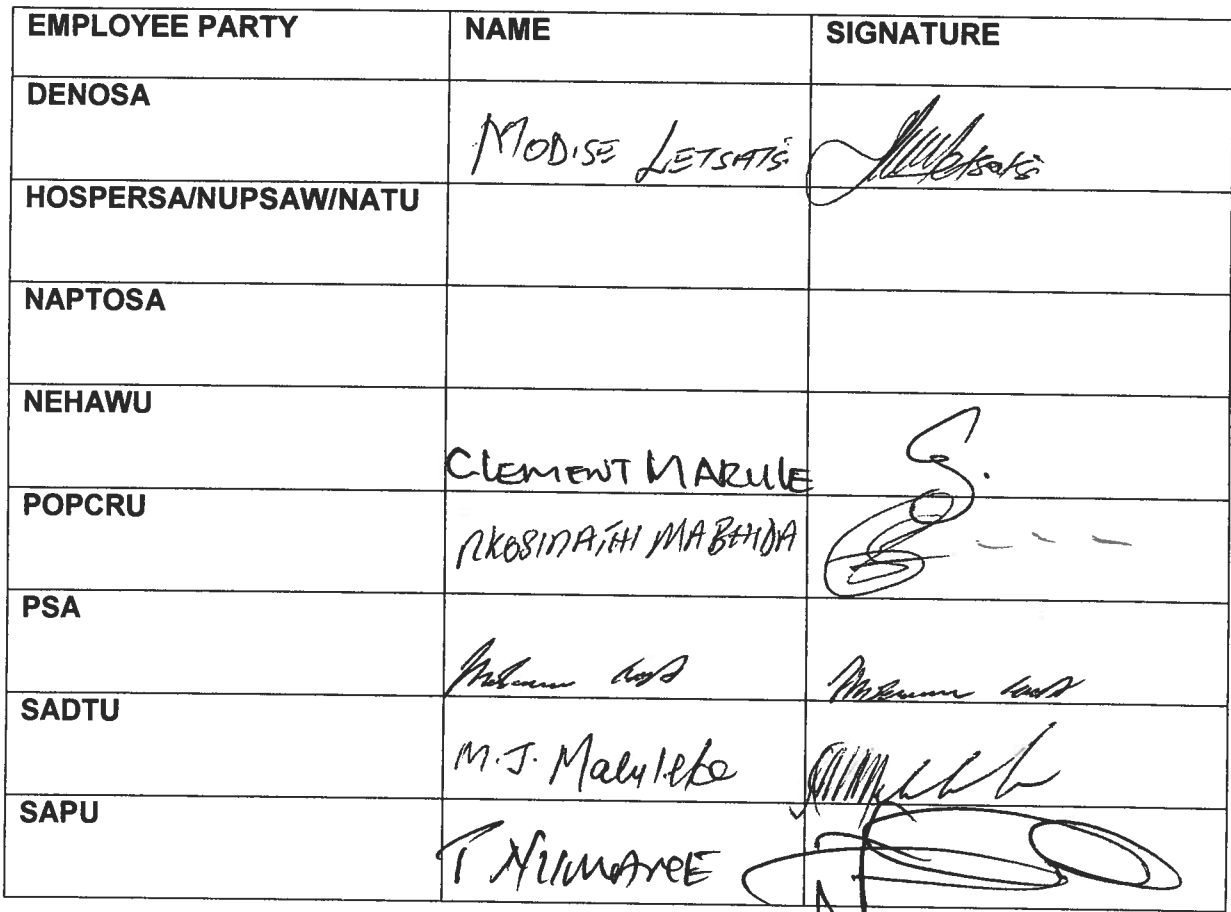 EMPLOYEE PARTY NAME SIGNATURE
DENOSA
MODISE LETSATSi
HOSPERSA/NUPSAW/NATU
NAPTOSA
NEHAWU
CLEMENT MARULE
POPCRU
NKOSINATHI MABHIDA
PSA
SADTU
M.J. Maluleke
SAPU
T